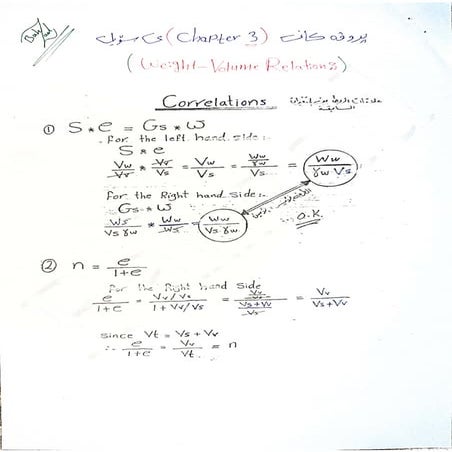 پروژه کانی (Chapter 3) ی سۆیل
(Weight-Volume Relations)
Correlations
① S * e = Gs * ω
for the left hand side:-
S * e
Vw/Vv * Vv/Vs = Vw/Vs = (Ww/γw)/Vs = Ww/(γw Vs)
for the Right hand side:-
Gs * ω
Ws/(Vs γw) * Ww/Ws = Ww/(Vs γw)
∴ O.K.
② n = e/(1+e)
for the Right hand side
e/(1+e) = (Vv/Vs)/(1+Vv/Vs) = (Vv/Vs)/((Vs+Vv)/Vs) = Vv/(Vs+Vv)
since Vt = Vs + Vv
∴ e/(1+e) = Vv/Vt = n